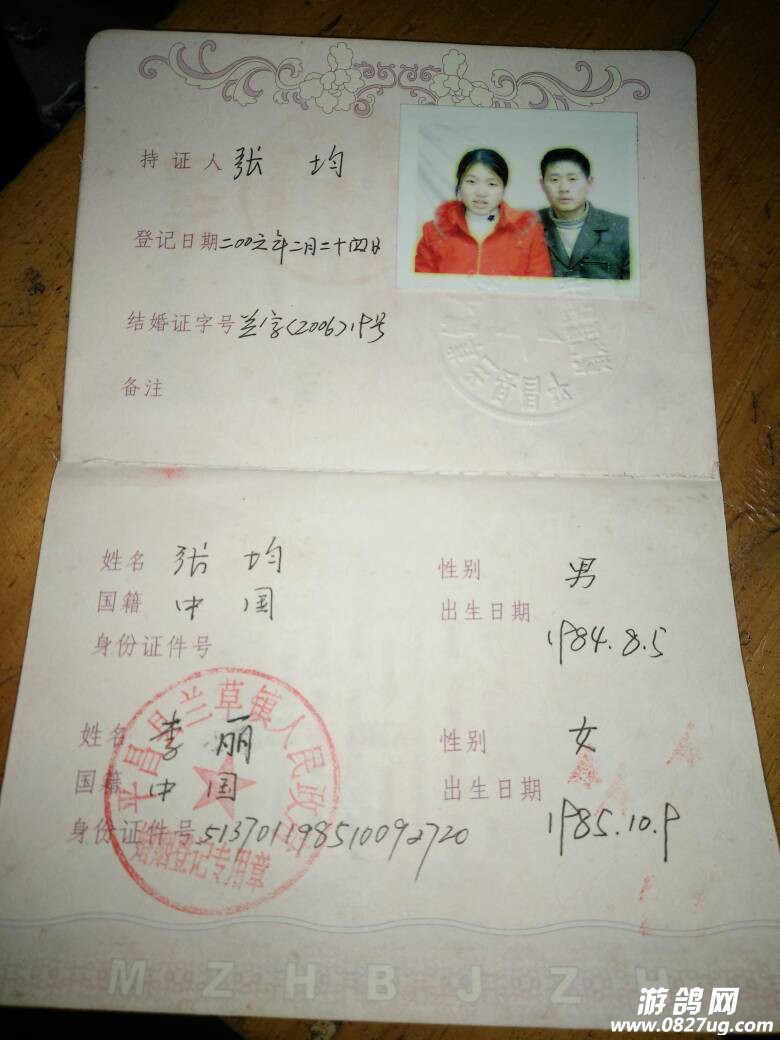 持证人 张 均
登记日期 二00六年二月二十四日
结婚证字号 兰字(2006)19号
备注
姓名 张 均 性别 男
国籍 中 国 出生日期 1984.8.5
身份证件号
姓名 李 丽 性别 女
国籍 中 国 出生日期 1985.10.9
身份证件号 513701198510092720
平昌县兰草镇人民政府
婚姻登记专用章
MZHBJZH
游鸽网
www.0827ug.com